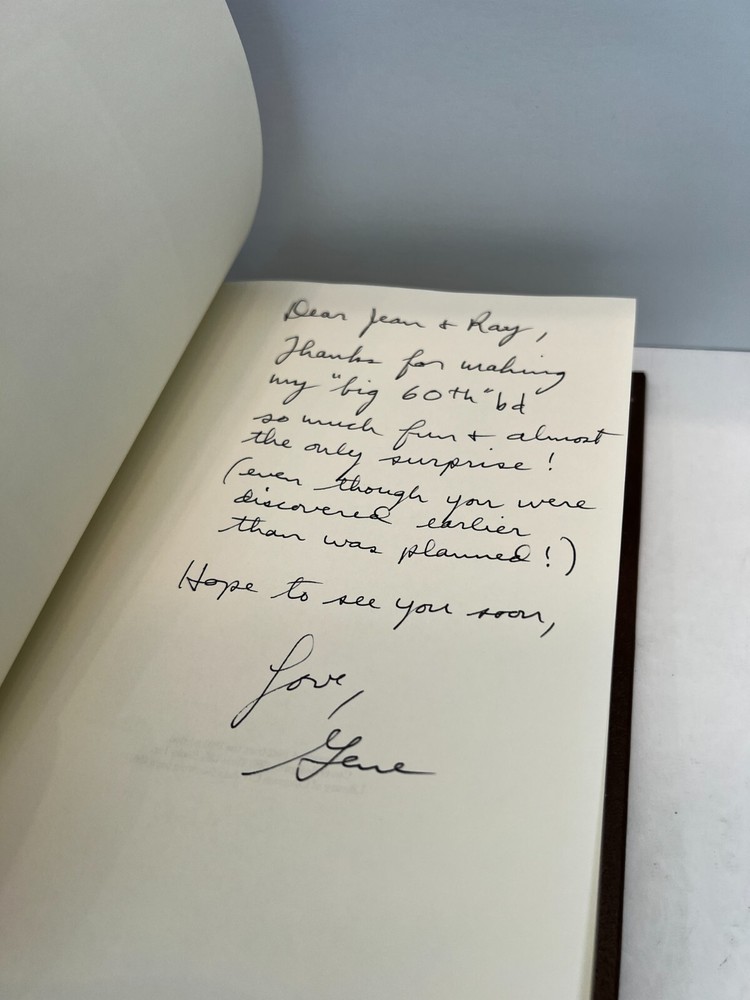 Dear Jean + Ray,
Thanks for making
my "big 60th" bd
so much fun + almost
the only surprise!
(even though you were
discovered earlier
than was planned!)
Hope to see you soon,
Love,
Gene